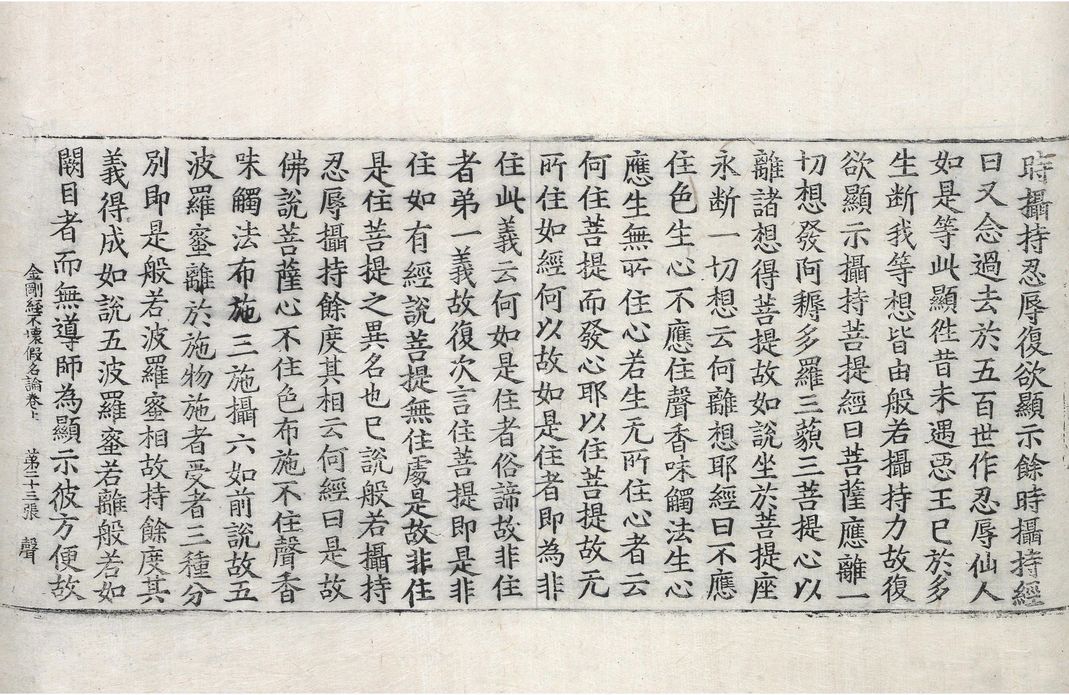 時攝持忍辱復欲顯示餘時攝持經
曰又念過去於五百世作忍辱仙人
如是等此顯徃昔未遇惡王已於多
生断我等想皆由般若攝持力故復
欲顯示攝持菩提經曰菩薩應離一
切想發阿耨多羅三藐三菩提心以
離諸想得菩提故如說坐於菩提座
永断一切想云何離想耶經曰不應
住色生心不應住聲香味觸法生心
應生無所住心若生无所住心者云
何住菩提而發心耶以住菩提故无
所住如經何以故如是住者即為非
住此義云何如是住者俗諦故非住
者弟一義故復次言住菩提即是非
住如有經說菩提無住處是故非住
是住菩提之異名也已說般若攝持
忍辱攝持餘度其相云何經曰是故
佛說菩薩心不住色布施不住聲香
味觸法布施三施攝六如前說故五
波羅蜜離於施物施者受者三種分
別即是般若波羅蜜相故持餘度其
義得成如說五波羅蜜若離般若如
闕目者而無導師為顯示彼方便故
金剛經不壞假名論卷上 苐二十三張 聲